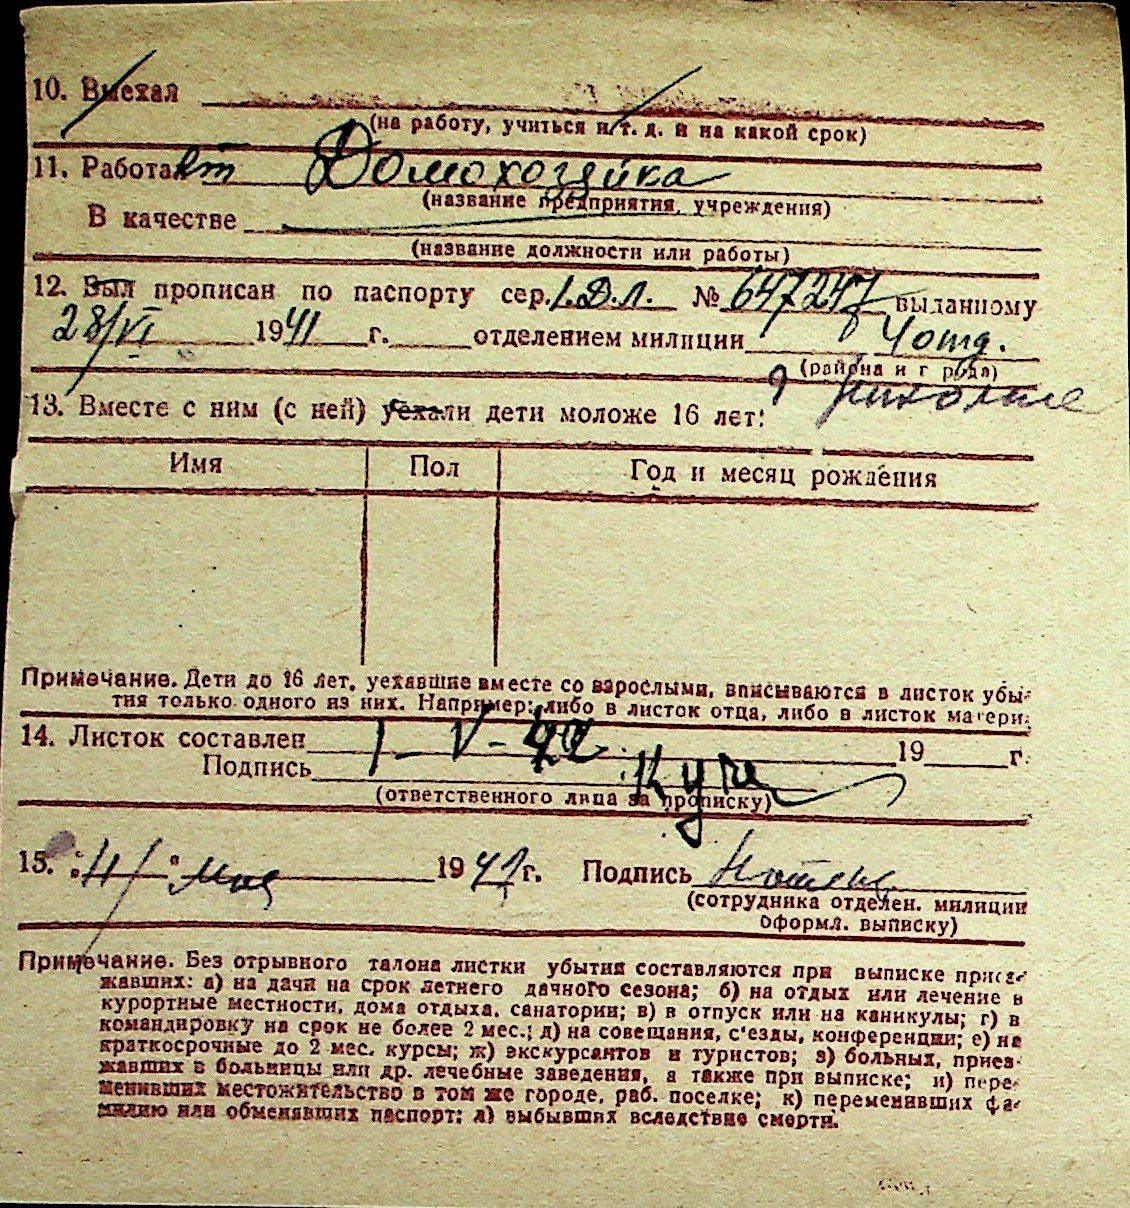 10. Выехал
(на работу, учиться и т. д. и на какой срок)
11. Работает Домохозяйка
(название предприятия, учреждения)
В качестве
(название должности или работы)
12. Был прописан по паспорту сер. I.Д.Л. № 647247 выданному
28/VI 1941 г. отделением милиции 4 отд.
(района и г рода)
13. Вместе с ним (с ней) уехали дети моложе 16 лет:
Имя Пол Год и месяц рождения
Примечание. Дети до 16 лет, уехавшие вместе со взрослыми, вписываются в листок убы-
тия только одного из них. Например: либо в листок отца, либо в листок матери.
14. Листок составлен 1-V-42 19 г.
Подпись
(ответственного лица за прописку)
15. "4" мая 1942 г. Подпись
(сотрудника отделен. милиции
оформл. выписку)
Примечание. Без отрывного талона листки убытия составляются при выписке приез-
жавших: а) на дачи на срок летнего дачного сезона; б) на отдых или лечение в
курортные местности, дома отдыха, санатории; в) в отпуск или на каникулы; г) в
командировку на срок не более 2 мес.; д) на совещания, с'езды, конференции; е) на
краткосрочные до 2 мес. курсы; ж) экскурсантов и туристов; з) больных, приез-
жавших в больницы или др. лечебные заведения, а также при выписке; и) пере-
менивших местожительство в том же городе, раб. поселке; к) переменивших фа-
милию или обменявших паспорт; л) выбывших вследствие смерти.